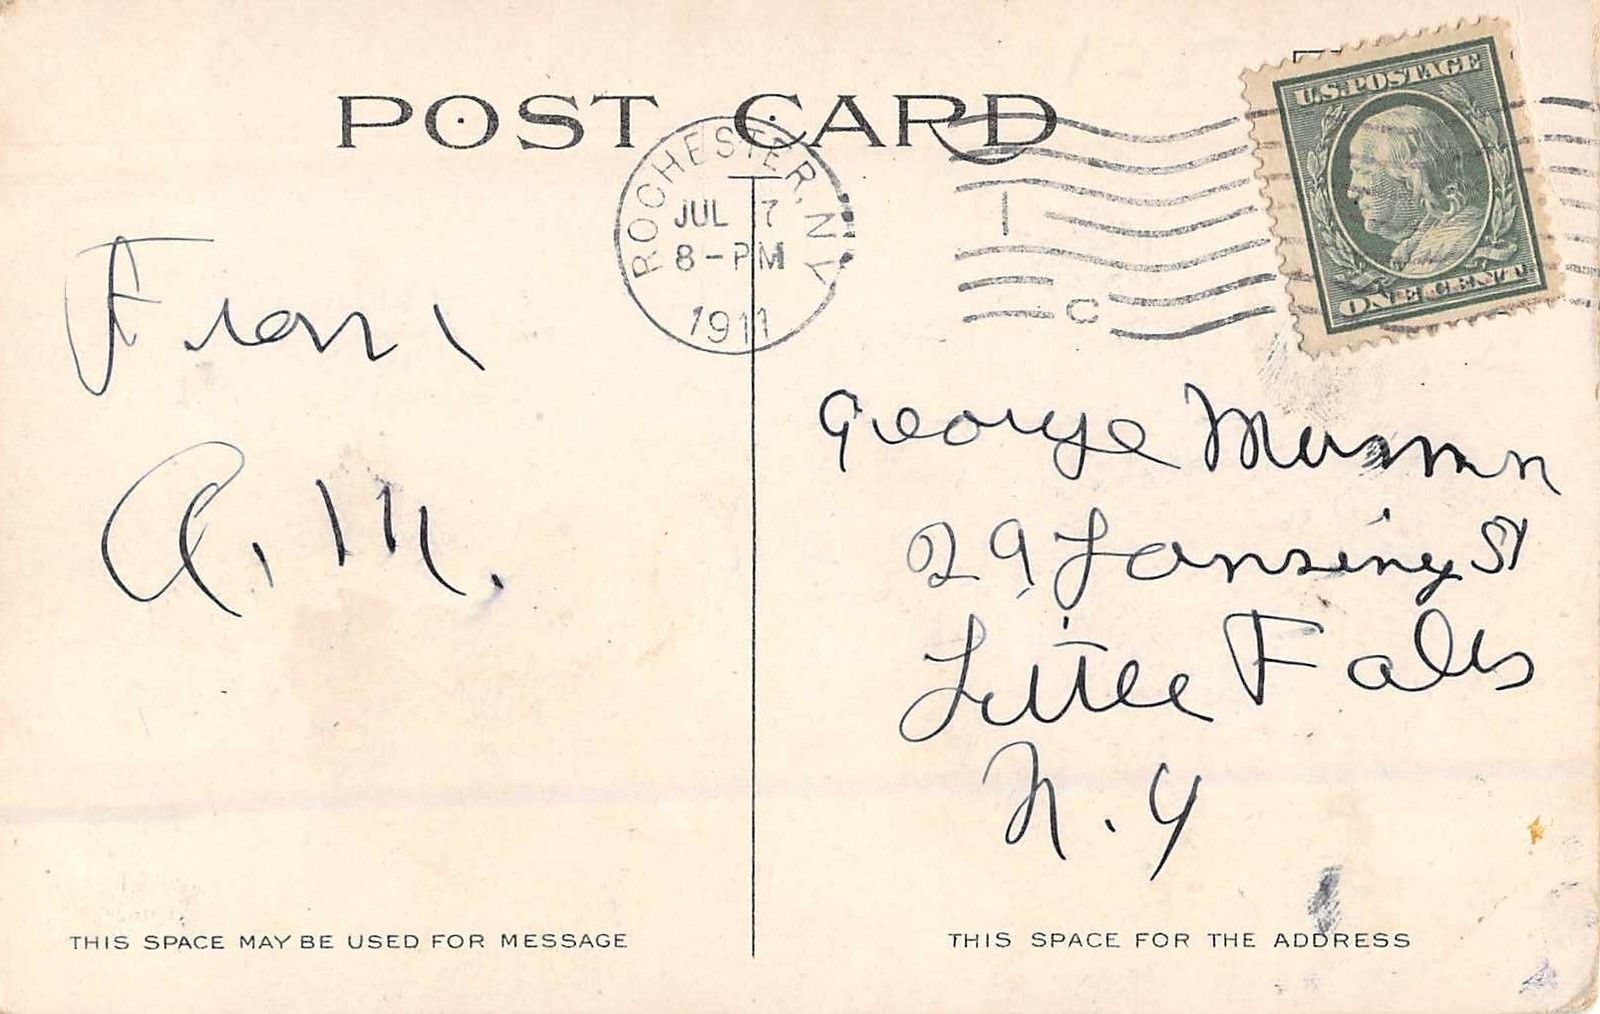 POST CARD
U.S. POSTAGE
ONE CENT
ROCHESTER, N.Y.
JUL 7
8-PM
1911
1
C
From
A. M.
George
29 Lansing St
Little Falls
N. Y
THIS SPACE MAY BE USED FOR MESSAGE
THIS SPACE FOR THE ADDRESS